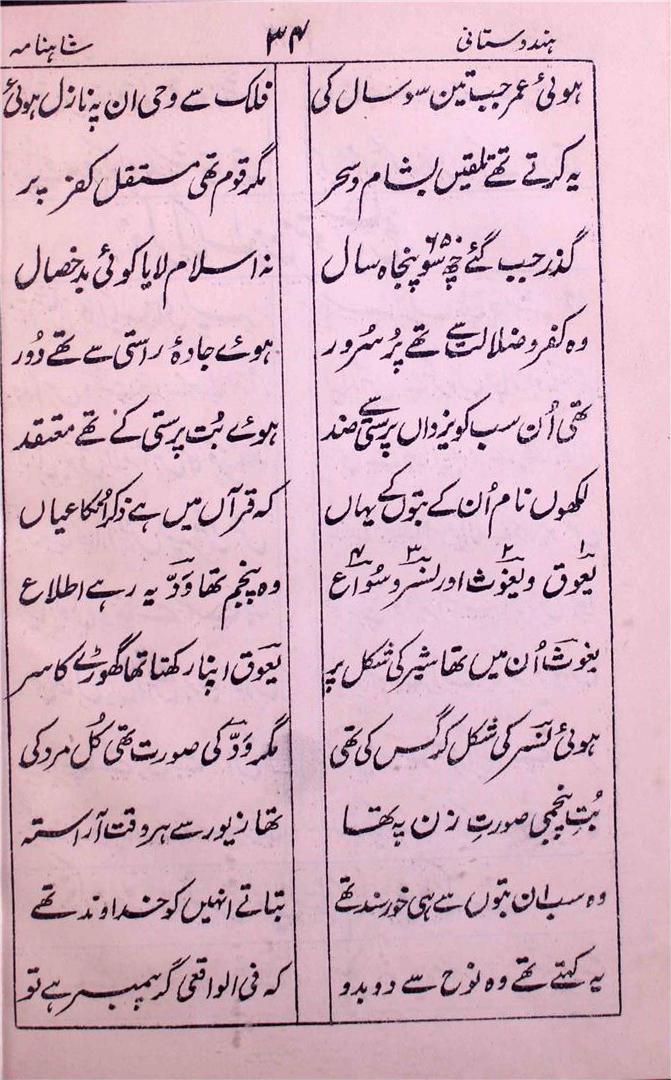 ہندوستانی ۳۴ شاہنامہ
ہوئی عمر جب تین سو سال کی فلک سے وحی ان پہ نازل ہوئی
یہ کرتے تھے تلقیں بشام و سحر مگر قوم تھی مستقل کفر پر
گذر جب گئے چھ سو پنجاہ سال نہ اسلام لایا کوئی بد خصال
وہ کفر و ضلالت سے تھے پُر سُرور ہوئے جادۂ راستی سے تھے دُور
تھی اُن سب کو یزداں پرستی سے ضد ہوئے بُت پرستی کے تھے معتقد
لکھوں نام اُن کے بتوں کے یہاں کہ قرآں میں ہے ذکر اُنکا عیاں
یعوق و یغوث اور نسر و سُواع وہ پنجم تھا وَدّ یہ رہے اطلاع
یغوث اُن میں تھا شیر کی شکل پر یعوق اپنا رکھتا تھا گھوڑے کا سر
ہوئی نسر کی شکل کرگس کی تھی مگر وَدّ کی صورت تھی کُل مرد کی
بُتِ پنجمی صورتِ زن پہ تھا تھا زیور سے ہر وقت آراستہ
وہ سب ان بتوں سے ہی خورسند تھے بتاتے انہیں کو خداوند تھے
یہ کہتے تھے وہ نوح سے دوبدو کہ فی الواقعی گر پیمبر ہے تو